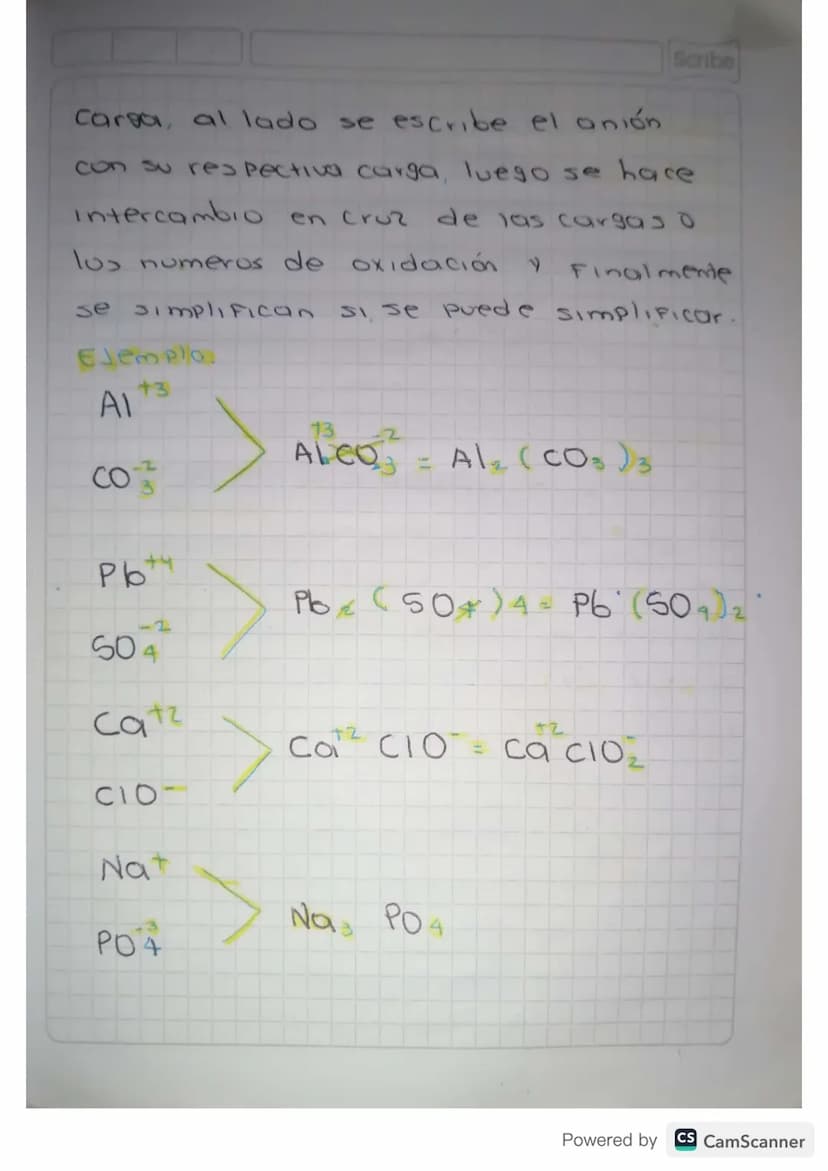 Scribe
carga, al lado se escribe el anión
con su respectiva carga, luego se hace
intercambio en cruz de las cargas o
los numeros de oxidación y Finalmente
se simplifican si se puede simplificar.
Ejemplo:
Al⁺³
CO₃⁻²
Al⁺³CO₃⁻² = Al₂(CO₃)₃
Pb⁺⁴
SO₄⁻²
Pb₂(SO₄)₄ = Pb(SO₄)₂
Ca⁺²
ClO⁻
Ca⁺² ClO⁻ = Ca⁺²ClO₂⁻
Na⁺
PO₄⁻³
Na₃ PO₄
Powered by CS CamScanner